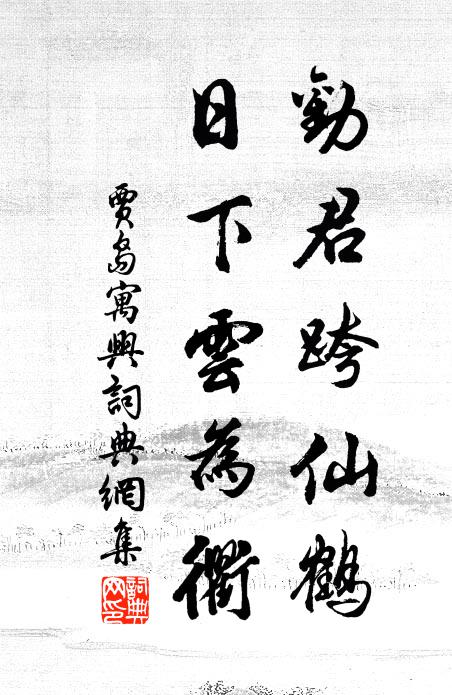 勸君跨仙鶴
日下雲為衢
賈島寓興詞典網集
詞典網印